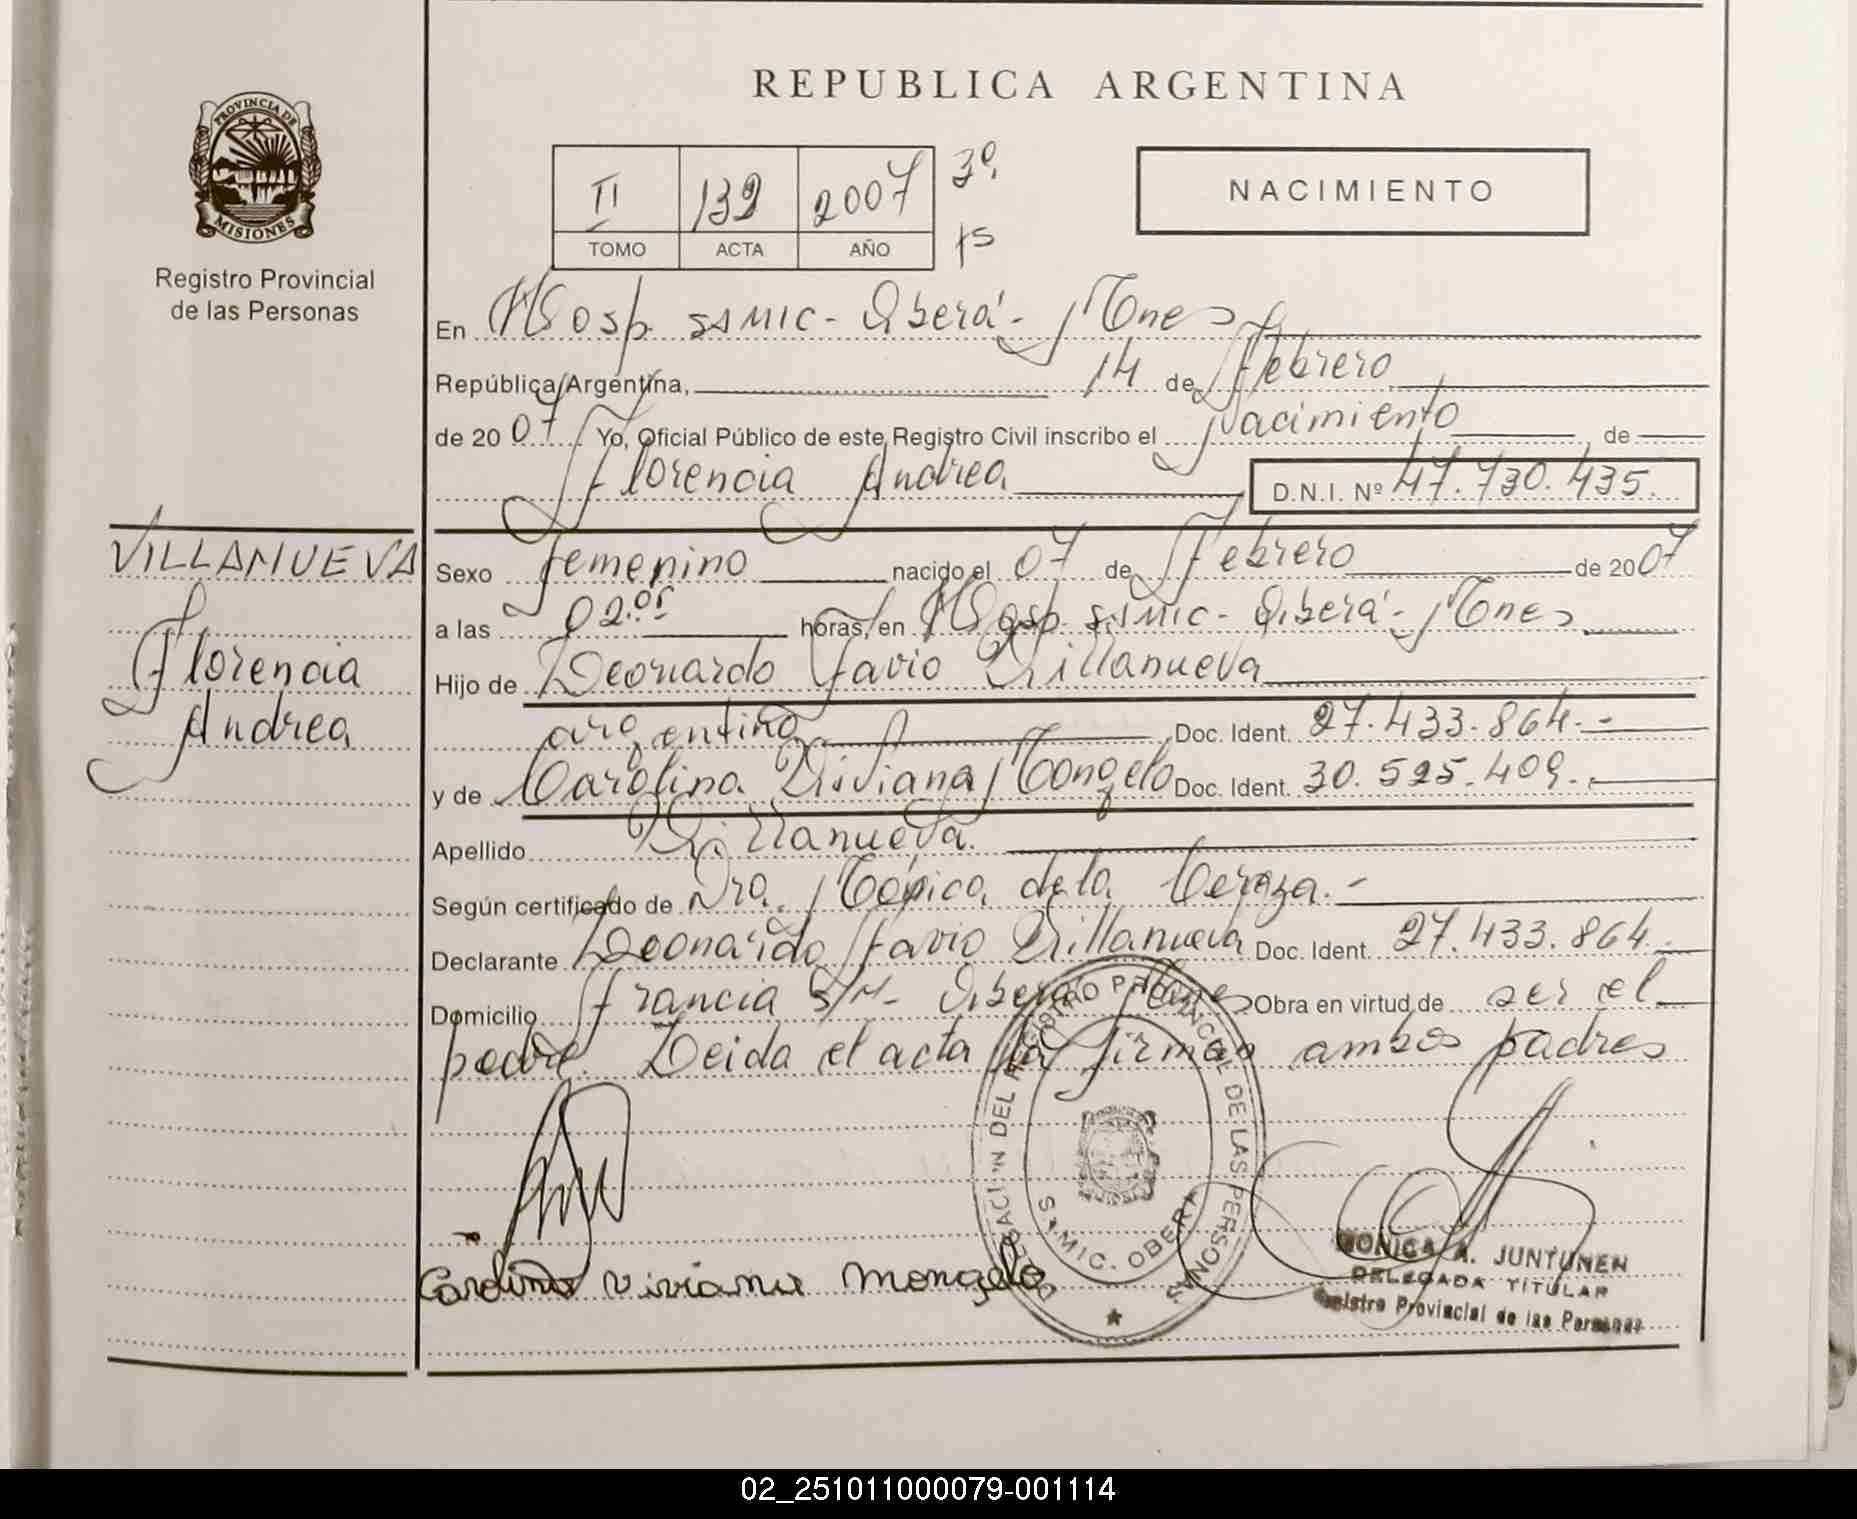 REPUBLICA ARGENTINA
PROVINCIA DE
MISIONES
Registro Provincial
de las Personas
II 132 2007 3º
TOMO ACTA AÑO
NACIMIENTO
En Hosp. SAMIC - Oberá - Mnes
República Argentina, 14 de Febrero
de 2007 Yo, Oficial Público de este Registro Civil inscribo el Nacimiento de
Florencia Andrea D.N.I. Nº 47.730.435.
VILLANUEVA
Florencia
Andrea
Sexo femenino nacido el 07 de Febrero de 2007
a las 02:05 horas, en Hosp. SAMIC - Oberá - Mnes
Hijo de Leonardo Favio Villanueva
argentino Doc. Ident. 27.433.864.-
y de Carolina Viviana Mongelo Doc. Ident. 30.525.409.-
Apellido Villanueva.
Según certificado de Dra. Mónica de la
Declarante Leonardo Favio Villanueva Doc. Ident. 27.433.864.-
Domicilio Francia S/N - Oberá Mnes Obra en virtud de ser el
padre. Leida el acta la firman ambos padres
DELEGACI'N DEL REGISTRO PROVINCIAL DE LAS PERSONAS
SAMIC. OBERA
Carolina Viviana Mongelo
MONICA A. JUNTUNEN
DELEGADA TITULAR
Registro Provincial de las Personas
02_251011000079-001114